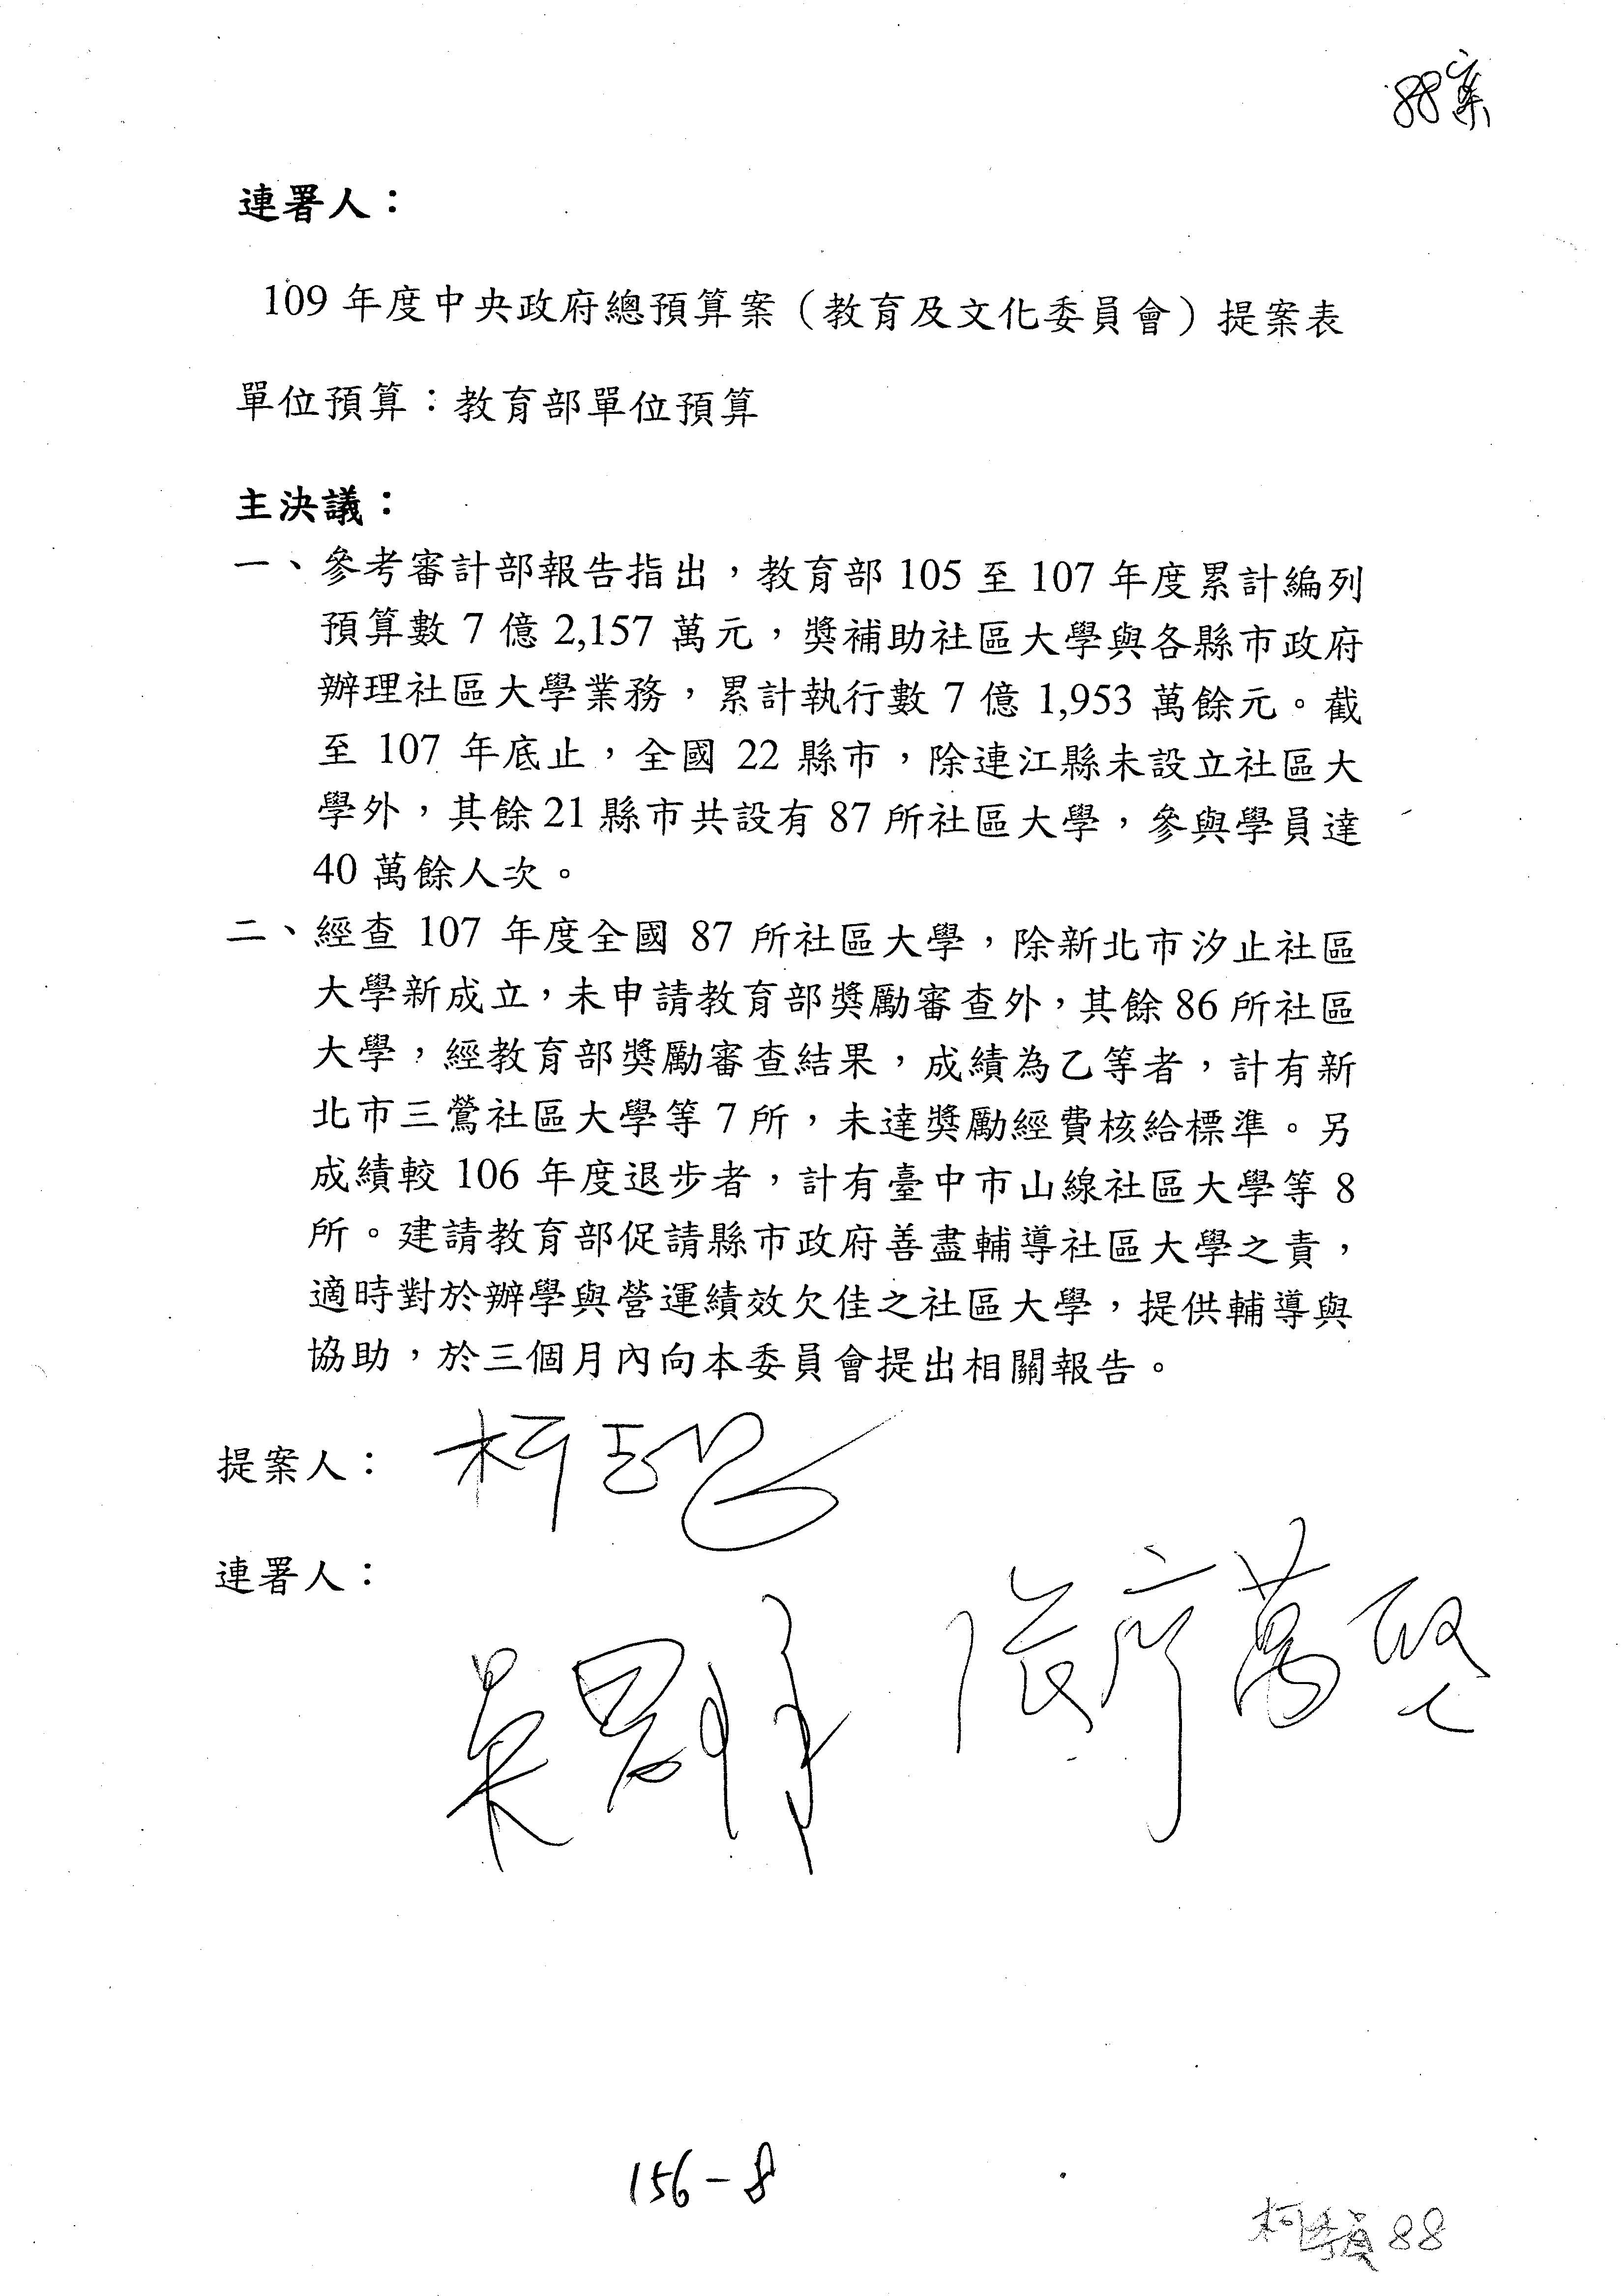 88案
連署人：
109 年度中央政府總預算案（教育及文化委員會）提案表
單位預算：教育部單位預算
主決議：
一、參考審計部報告指出，教育部 105 至 107 年度累計編列
預算數 7 億 2,157 萬元，獎補助社區大學與各縣市政府
辦理社區大學業務，累計執行數 7 億 1,953 萬餘元。截
至 107 年底止，全國 22 縣市，除連江縣未設立社區大
學外，其餘 21 縣市共設有 87 所社區大學，參與學員達
40 萬餘人次。
二、經查 107 年度全國 87 所社區大學，除新北市汐止社區
大學新成立，未申請教育部獎勵審查外，其餘 86 所社區
大學，經教育部獎勵審查結果，成績為乙等者，計有新
北市三鶯社區大學等 7 所，未達獎勵經費核給標準。另
成績較 106 年度退步者，計有臺中市山線社區大學等 8
所。建請教育部促請縣市政府善盡輔導社區大學之責，
適時對於辦學與營運績效欠佳之社區大學，提供輔導與
協助，於三個月內向本委員會提出相關報告。
提案人：
連署人：
156-8
柯委員 88